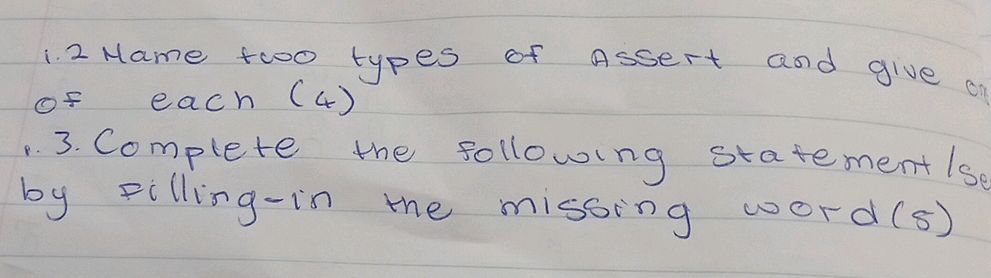 1.2 Name two types of Assert and give
of each (4)
1.3. Complete the following statement/se
by filling-in the missing word(s)